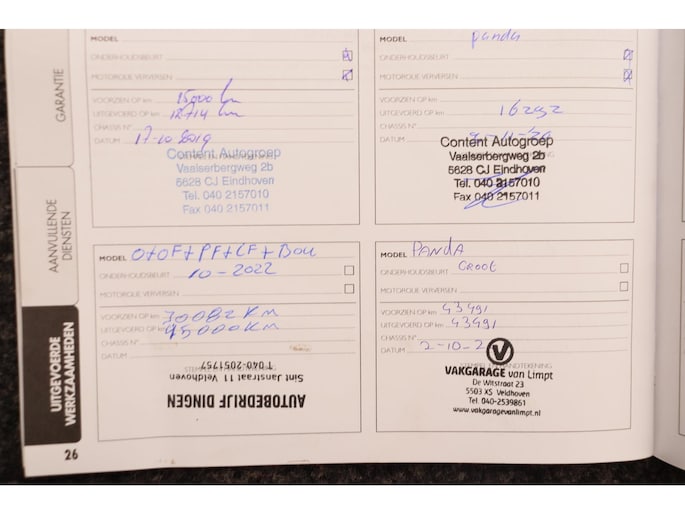 GARANTIE
AANVULLENDE
DIENSTEN
UITGEVOERDE
WERKZAAMHEDEN
26
MODEL
ONDERHOUDSBEURT
MOTOROLIE VERVERSEN
VOORZIEN OP km 15000 km
UITGEVOERD OP km 12714 km
CHASSIS N°
DATUM 17-10-2019
Content Autogroep
Vaalserbergweg 2b
5628 CJ Eindhoven
Tel. 040 2157010
Fax 040 2157011
MODEL panda
ONDERHOUDSBEURT
MOTOROLIE VERVERSEN
VOORZIEN OP km
UITGEVOERD OP km 16292
CHASSIS N°
DATUM
Content Autogroep
Vaalserbergweg 2b
5628 CJ Eindhoven
Tel. 040 2157010
Fax 040 2157011
MODEL O+OF+PF+LF+BOU
ONDERHOUDSBEURT 10-2022
MOTOROLIE VERVERSEN
VOORZIEN OP km 30082 KM
UITGEVOERD OP km 45000 KM
CHASSIS N°
DATUM
AUTOBEDRIJF DINGEN
Sint Janstraat 11 Veldhoven
T 040-2051757
MODEL PANDA
ONDERHOUDSBEURT GROOT
MOTOROLIE VERVERSEN
VOORZIEN OP km 43491
UITGEVOERD OP km 43491
CHASSIS N°
DATUM 2-10-2
VAKGARAGE van Limpt
De Witstraat 23
5503 XS Veldhoven
Tel. 040-2539861
www.vakgaragevanlimpt.nl